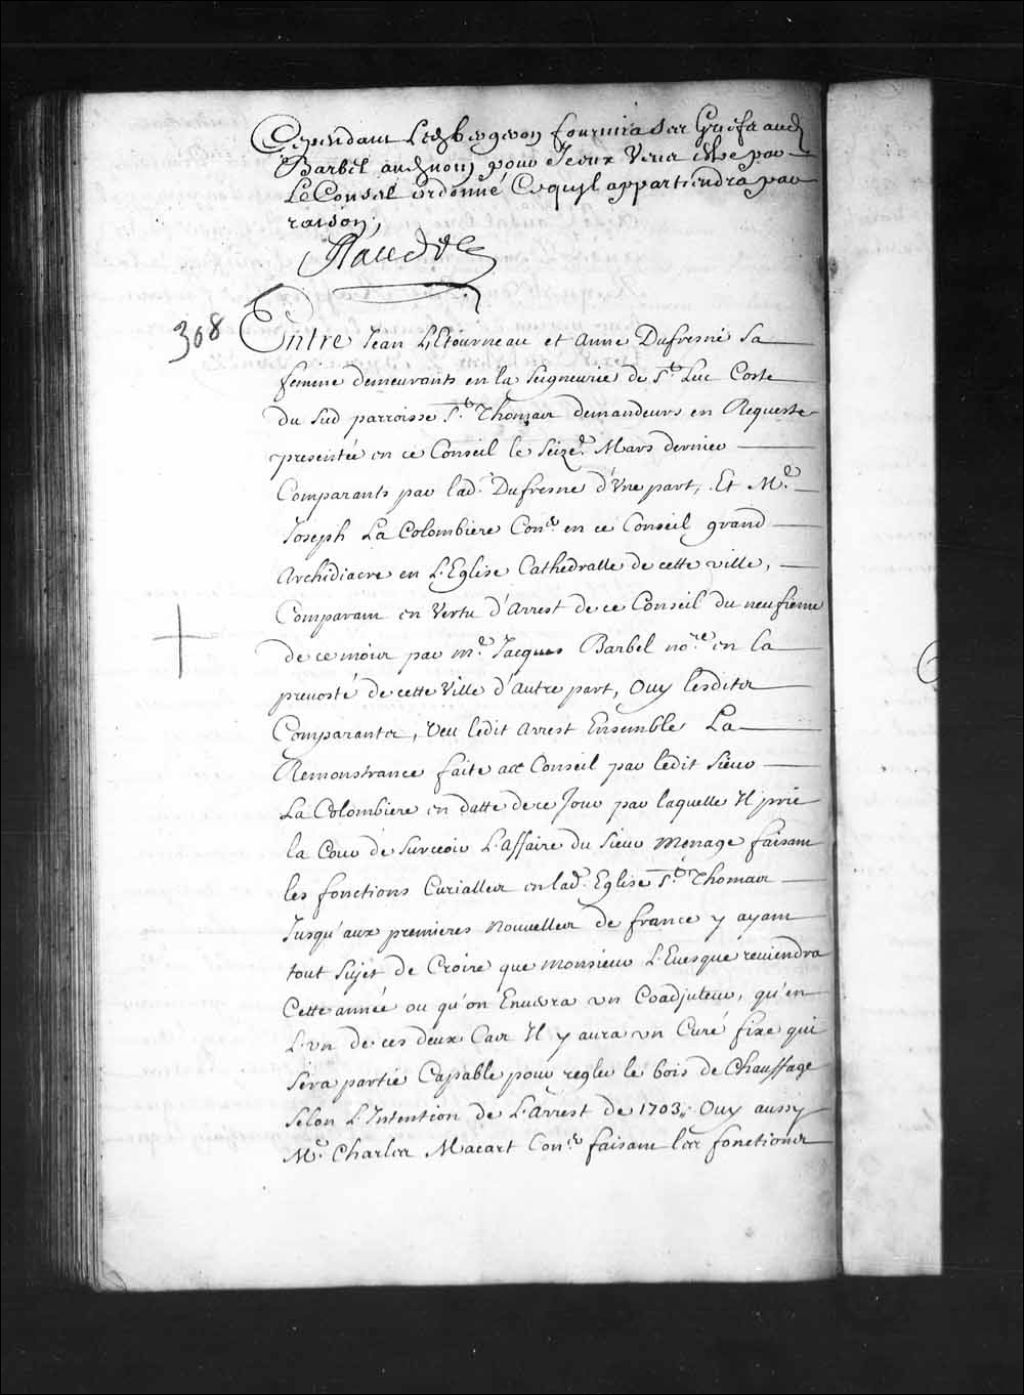 Cependant Led. bergeron fournira ses Griefs aud.
Barbel aud. nom pour Iceux Veus estre par
Le Conseil ordonné Cequ'il appartiendra par
raison;
308
Entre Jean LEtourneau et Anne Dufresne Sa
femme demeurants en la Seigneurie de St. Luc Coste
du Sud parroisse St. Thomas demandeurs en Requeste
presentée en ce Conseil le Seize. Mars dernier
Comparants par lad. Dufresne d'Une part, Et Me.
Joseph La Colombiere Conr. en ce Conseil grand
Archidiacre en L'Eglise Cathedralle de cette ville,
Comparant en Vertu d'Arrest de ce Conseil du neufieme
de ce mois par me. Jacques Barbel nore. en la
prevosté de cette Ville d'Autre part, Ouy lesdites
Comparantes, Veu ledit Arrest Ensemble La
Remonstrance faite au Conseil par ledit Sieur
La Colombiere en datte de ce Jour par laquelle Il prie
la Cour de Surceoir L'affaire du Sieur Menage faisant
les fonctions Curialles en lad. Eglise St. Thomas
Jusqu'aux premieres Nouvelles de france y ayant
tout Sujet de Croire que Monsieur L'Evesque reviendra
Cette année ou qu'on Envoera un Coadjuteur, qu'en
L'un de ces deux Cas Il y aura un Curé fixe qui
Sera partie Capable pour regler le bois de Chauffage
Selon L'Intention de L'Arrest de 1703; Ouy aussy
Me. Charles Macart Conr. faisant les fonctions